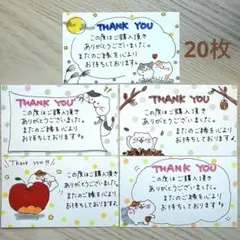 THANK YOU
この度はご購入頂き
ありがとうございました。
またのご縁を心より
お待ちしております
20枚
THANK YOU
この度はご購入頂き
ありがとうございました。
またのご縁を心より
お待ちしております
THANK YOU
この度はご購入頂き
ありがとうございました。
またのご縁を心より
お待ちしております
Thank you
この度はご購入頂き
ありがとうございました。
またのご縁を心より
お待ちしております
THANK YOU
この度はご購入頂き
ありがとうございました。
またのご縁を心より
お待ちしております